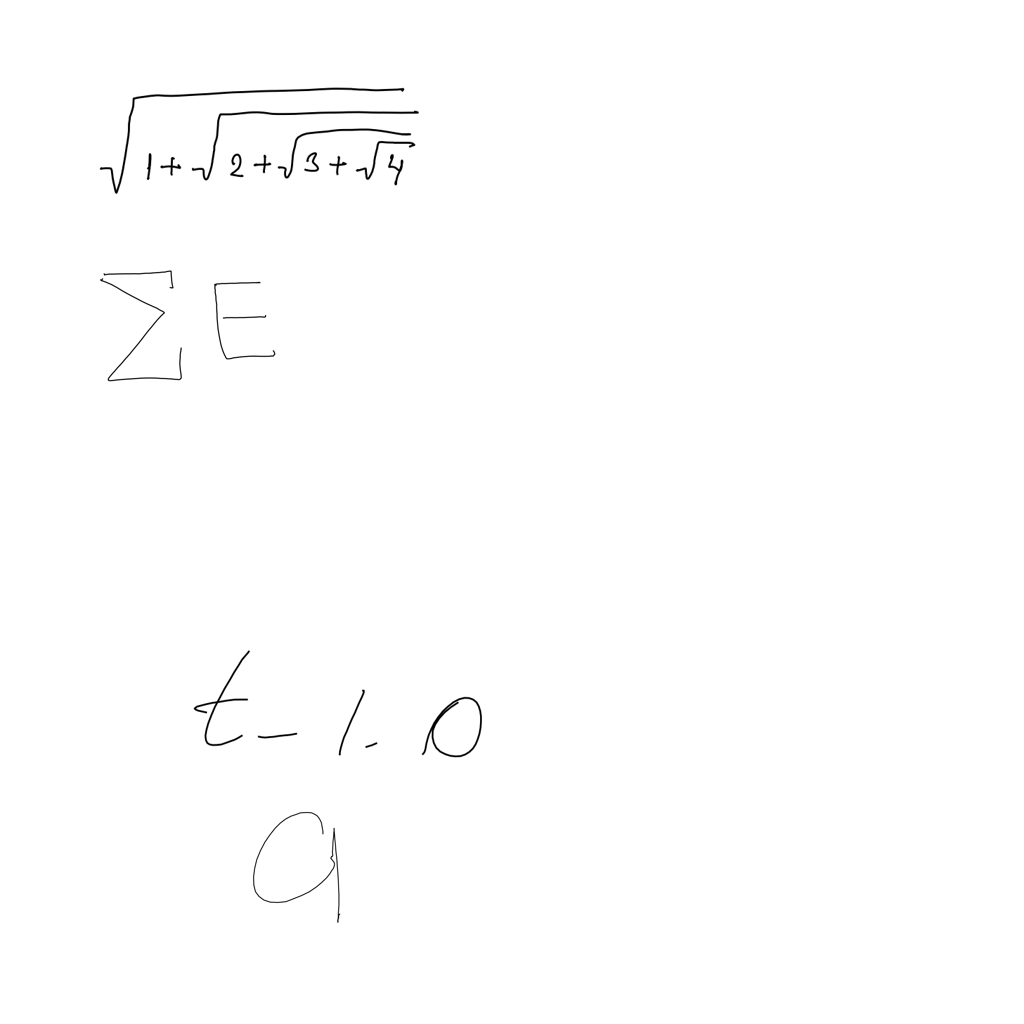 √(1+√(2+√(3+√4)))
∑ E
t_1.0
a